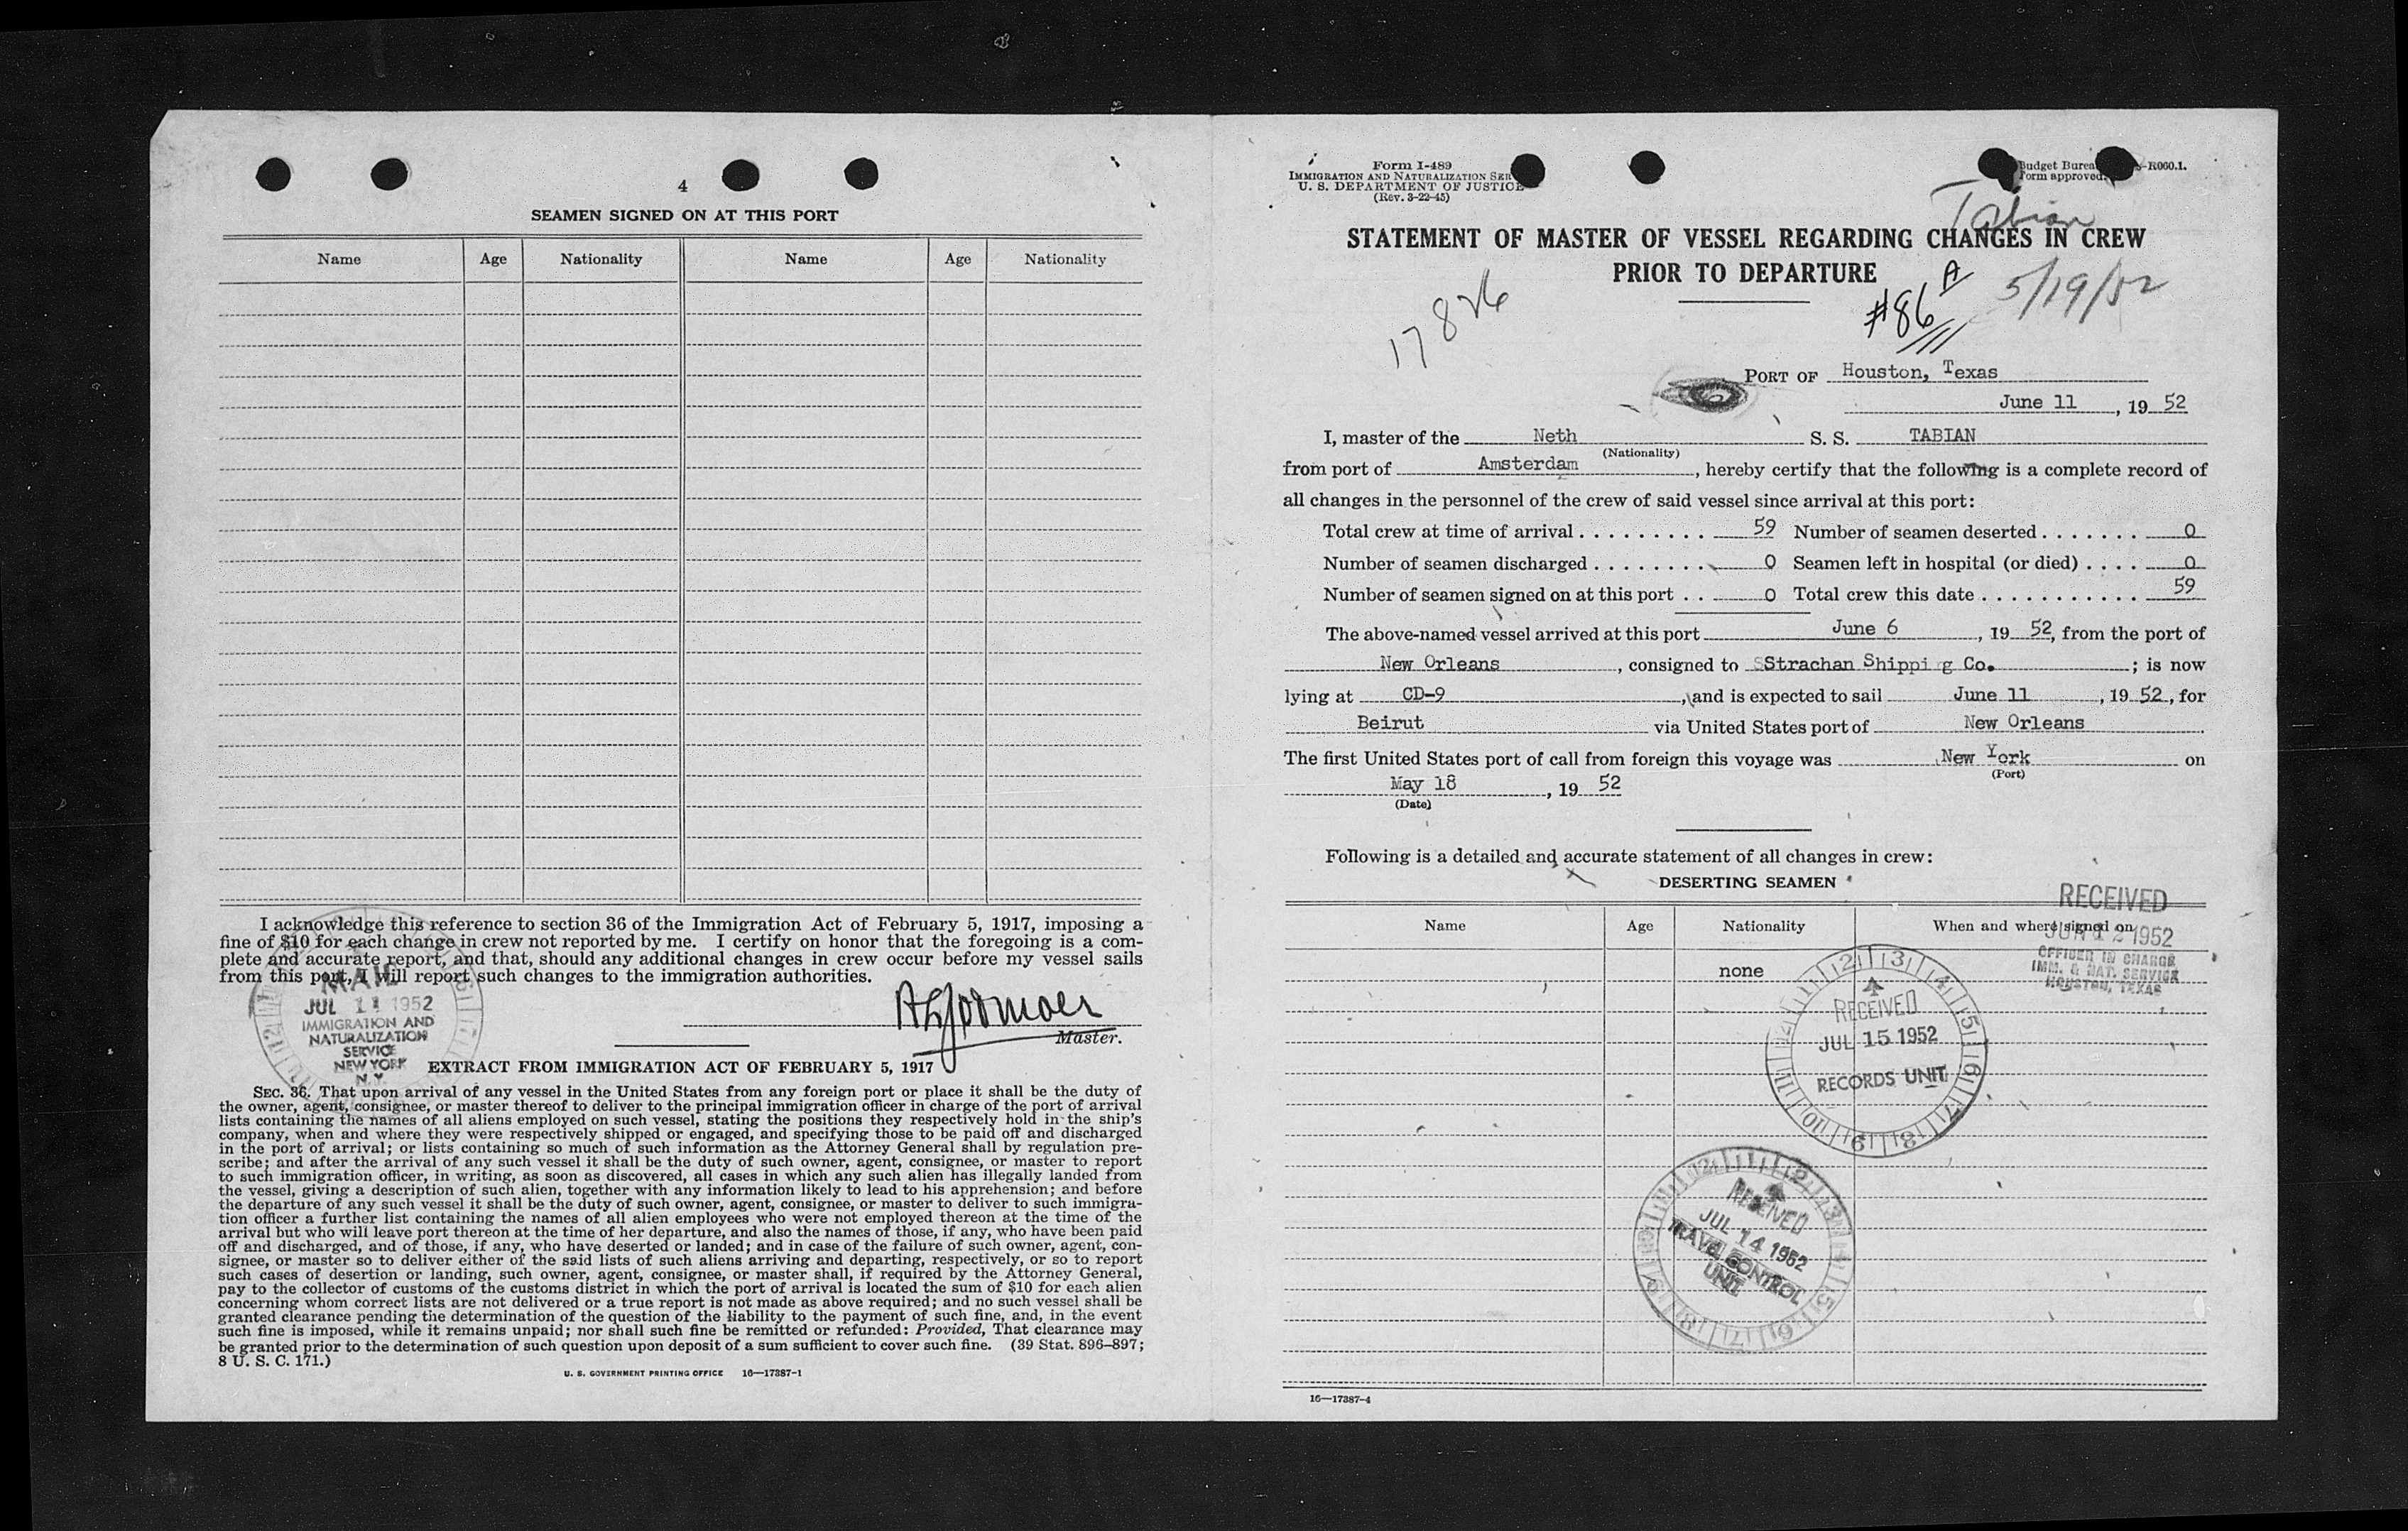 4
SEAMEN SIGNED ON AT THIS PORT
Name Age Nationality Name Age Nationality
I acknowledge this reference to section 36 of the Immigration Act of February 5, 1917, imposing a
fine of $10 for each change in crew not reported by me. I certify on honor that the foregoing is a com-
plete and accurate report, and that, should any additional changes in crew occur before my vessel sails
from this port, I will report such changes to the immigration authorities.
MAIL
JUL 11 1952
IMMIGRATION AND
NATURALIZATION
SERVICE
NEW YORK
N. Y.
Master.
EXTRACT FROM IMMIGRATION ACT OF FEBRUARY 5, 1917
SEC. 36. That upon arrival of any vessel in the United States from any foreign port or place it shall be the duty of
the owner, agent, consignee, or master thereof to deliver to the principal immigration officer in charge of the port of arrival
lists containing the names of all aliens employed on such vessel, stating the positions they respectively hold in the ship's
company, when and where they were respectively shipped or engaged, and specifying those to be paid off and discharged
in the port of arrival; or lists containing so much of such information as the Attorney General shall by regulation pre-
scribe; and after the arrival of any such vessel it shall be the duty of such owner, agent, consignee, or master to report
to such immigration officer, in writing, as soon as discovered, all cases in which any such alien has illegally landed from
the vessel, giving a description of such alien, together with any information likely to lead to his apprehension; and before
the departure of any such vessel it shall be the duty of such owner, agent, consignee, or master to deliver to such immigra-
tion officer a further list containing the names of all alien employees who were not employed thereon at the time of the
arrival but who will leave port thereon at the time of her departure, and also the names of those, if any, who have been paid
off and discharged, and of those, if any, who have deserted or landed; and in case of the failure of such owner, agent, con-
signee, or master so to deliver either of the said lists of such aliens arriving and departing, respectively, or so to report
such cases of desertion or landing, such owner, agent, consignee, or master shall, if required by the Attorney General,
pay to the collector of customs of the customs district in which the port of arrival is located the sum of $10 for each alien
concerning whom correct lists are not delivered or a true report is not made as above required; and no such vessel shall be
granted clearance pending the determination of the question of the liability to the payment of such fine, and, in the event
such fine is imposed, while it remains unpaid; nor shall such fine be remitted or refunded: Provided, That clearance may
be granted prior to the determination of such question upon deposit of a sum sufficient to cover such fine. (39 Stat. 896–897;
8 U. S. C. 171.)
U. S. GOVERNMENT PRINTING OFFICE 16—17387-1
Form I-489
IMMIGRATION AND NATURALIZATION SER
U. S. DEPARTMENT OF JUSTICE
(Rev. 3-22-45)
Budget Burea -R060.1.
Form approved.
Tabian
STATEMENT OF MASTER OF VESSEL REGARDING CHANGES IN CREW
PRIOR TO DEPARTURE
17826
#86 A
5/19/52
PORT OF Houston, Texas
June 11, 19 52
I, master of the Neth S. S. TABIAN
(Nationality)
from port of Amsterdam, hereby certify that the following is a complete record of
all changes in the personnel of the crew of said vessel since arrival at this port:
Total crew at time of arrival . . . . . . . . . 59 Number of seamen deserted . . . . . . . 0
Number of seamen discharged . . . . . . . . 0 Seamen left in hospital (or died) . . . . 0
Number of seamen signed on at this port . . 0 Total crew this date . . . . . . . . . . . . 59
The above-named vessel arrived at this port June 6, 19 52, from the port of
New Orleans, consigned to SStrachan Shippi g Co.; is now
lying at CD-9, and is expected to sail June 11, 19 52, for
Beirut via United States port of New Orleans.
The first United States port of call from foreign this voyage was New York on
(Port)
May 18, 19 52
(Date)
Following is a detailed and accurate statement of all changes in crew:
DESERTING SEAMEN
Name Age Nationality When and where signed on
none
RECEIVED
JUN 12 1952
OFFICER IN CHARGE
IMM. & NAT. SERVICE
HOUSTON, TEXAS
RECEIVED
JUL 15 1952
RECORDS UNIT
RECEIVED
JUL 14 1952
TRAVEL CONTROL
UNIT
16—17387-4